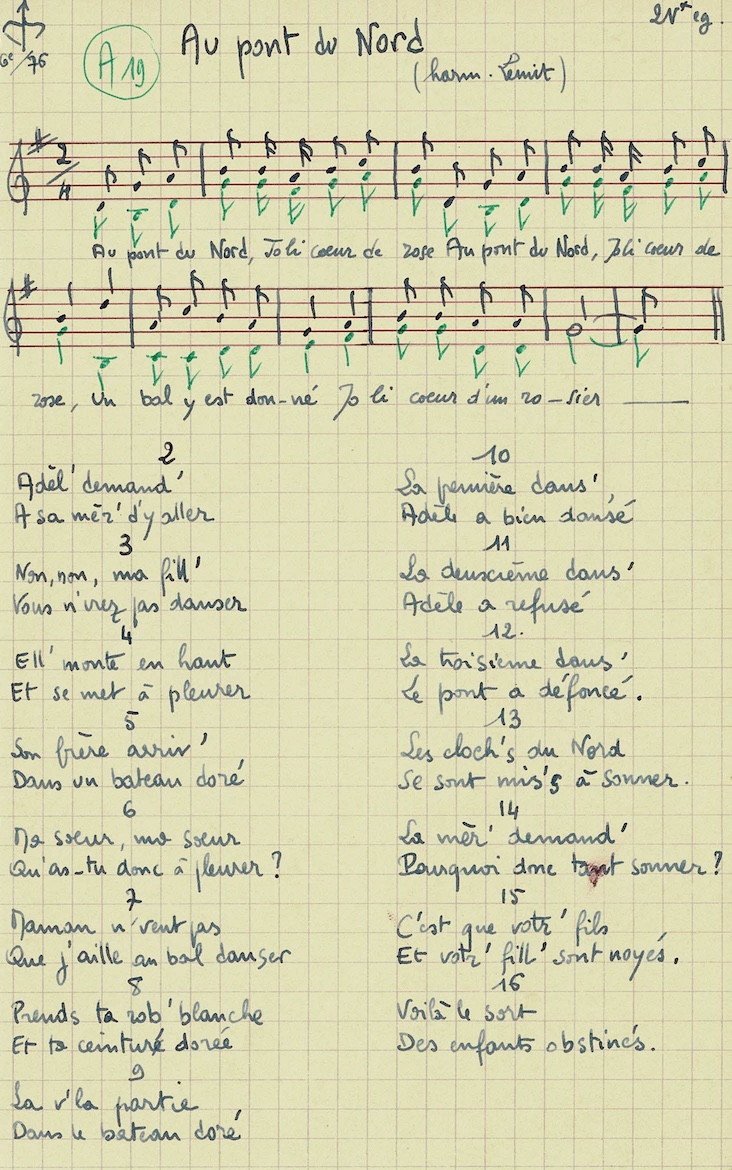 2V* eg.
6e/76
A 19
Au pont du Nord
(harm. Lemit)
2
4
Au pont du Nord, Joli coeur de rose Au pont du Nord, Joli coeur de
rose, Un bal y est don-né Jo li coeur d'un ro-sier
2
Adèl' demand'
A sa mèr' d'y aller
3
Non, non, ma fill'
Vous n'irez pas danser
4
Ell' monte en haut
Et se met à pleurer
5
Son frère arriv'
Dans un bateau doré
6
Ma soeur, ma soeur
Qu'as-tu donc à pleurer ?
7
Maman n'veut pas
Que j'aille au bal danser
8
Prends ta rob' blanche
Et ta ceinture dorée
9
La v'la partie
Dans le bateau doré
10
La première dans'
Adèle a bien dansé
11
La deuxième dans'
Adèle a refusé
12.
La troisième dans'
Le pont a défoncé.
13
Les cloch's du Nord
Se sont mis's à sonner.
14
La mèr' demand'
Pourquoi donc tant sonner ?
15
C'est que votr' fils
Et votr' fill' sont noyés.
16
Voilà le sort
Des enfants obstinés.